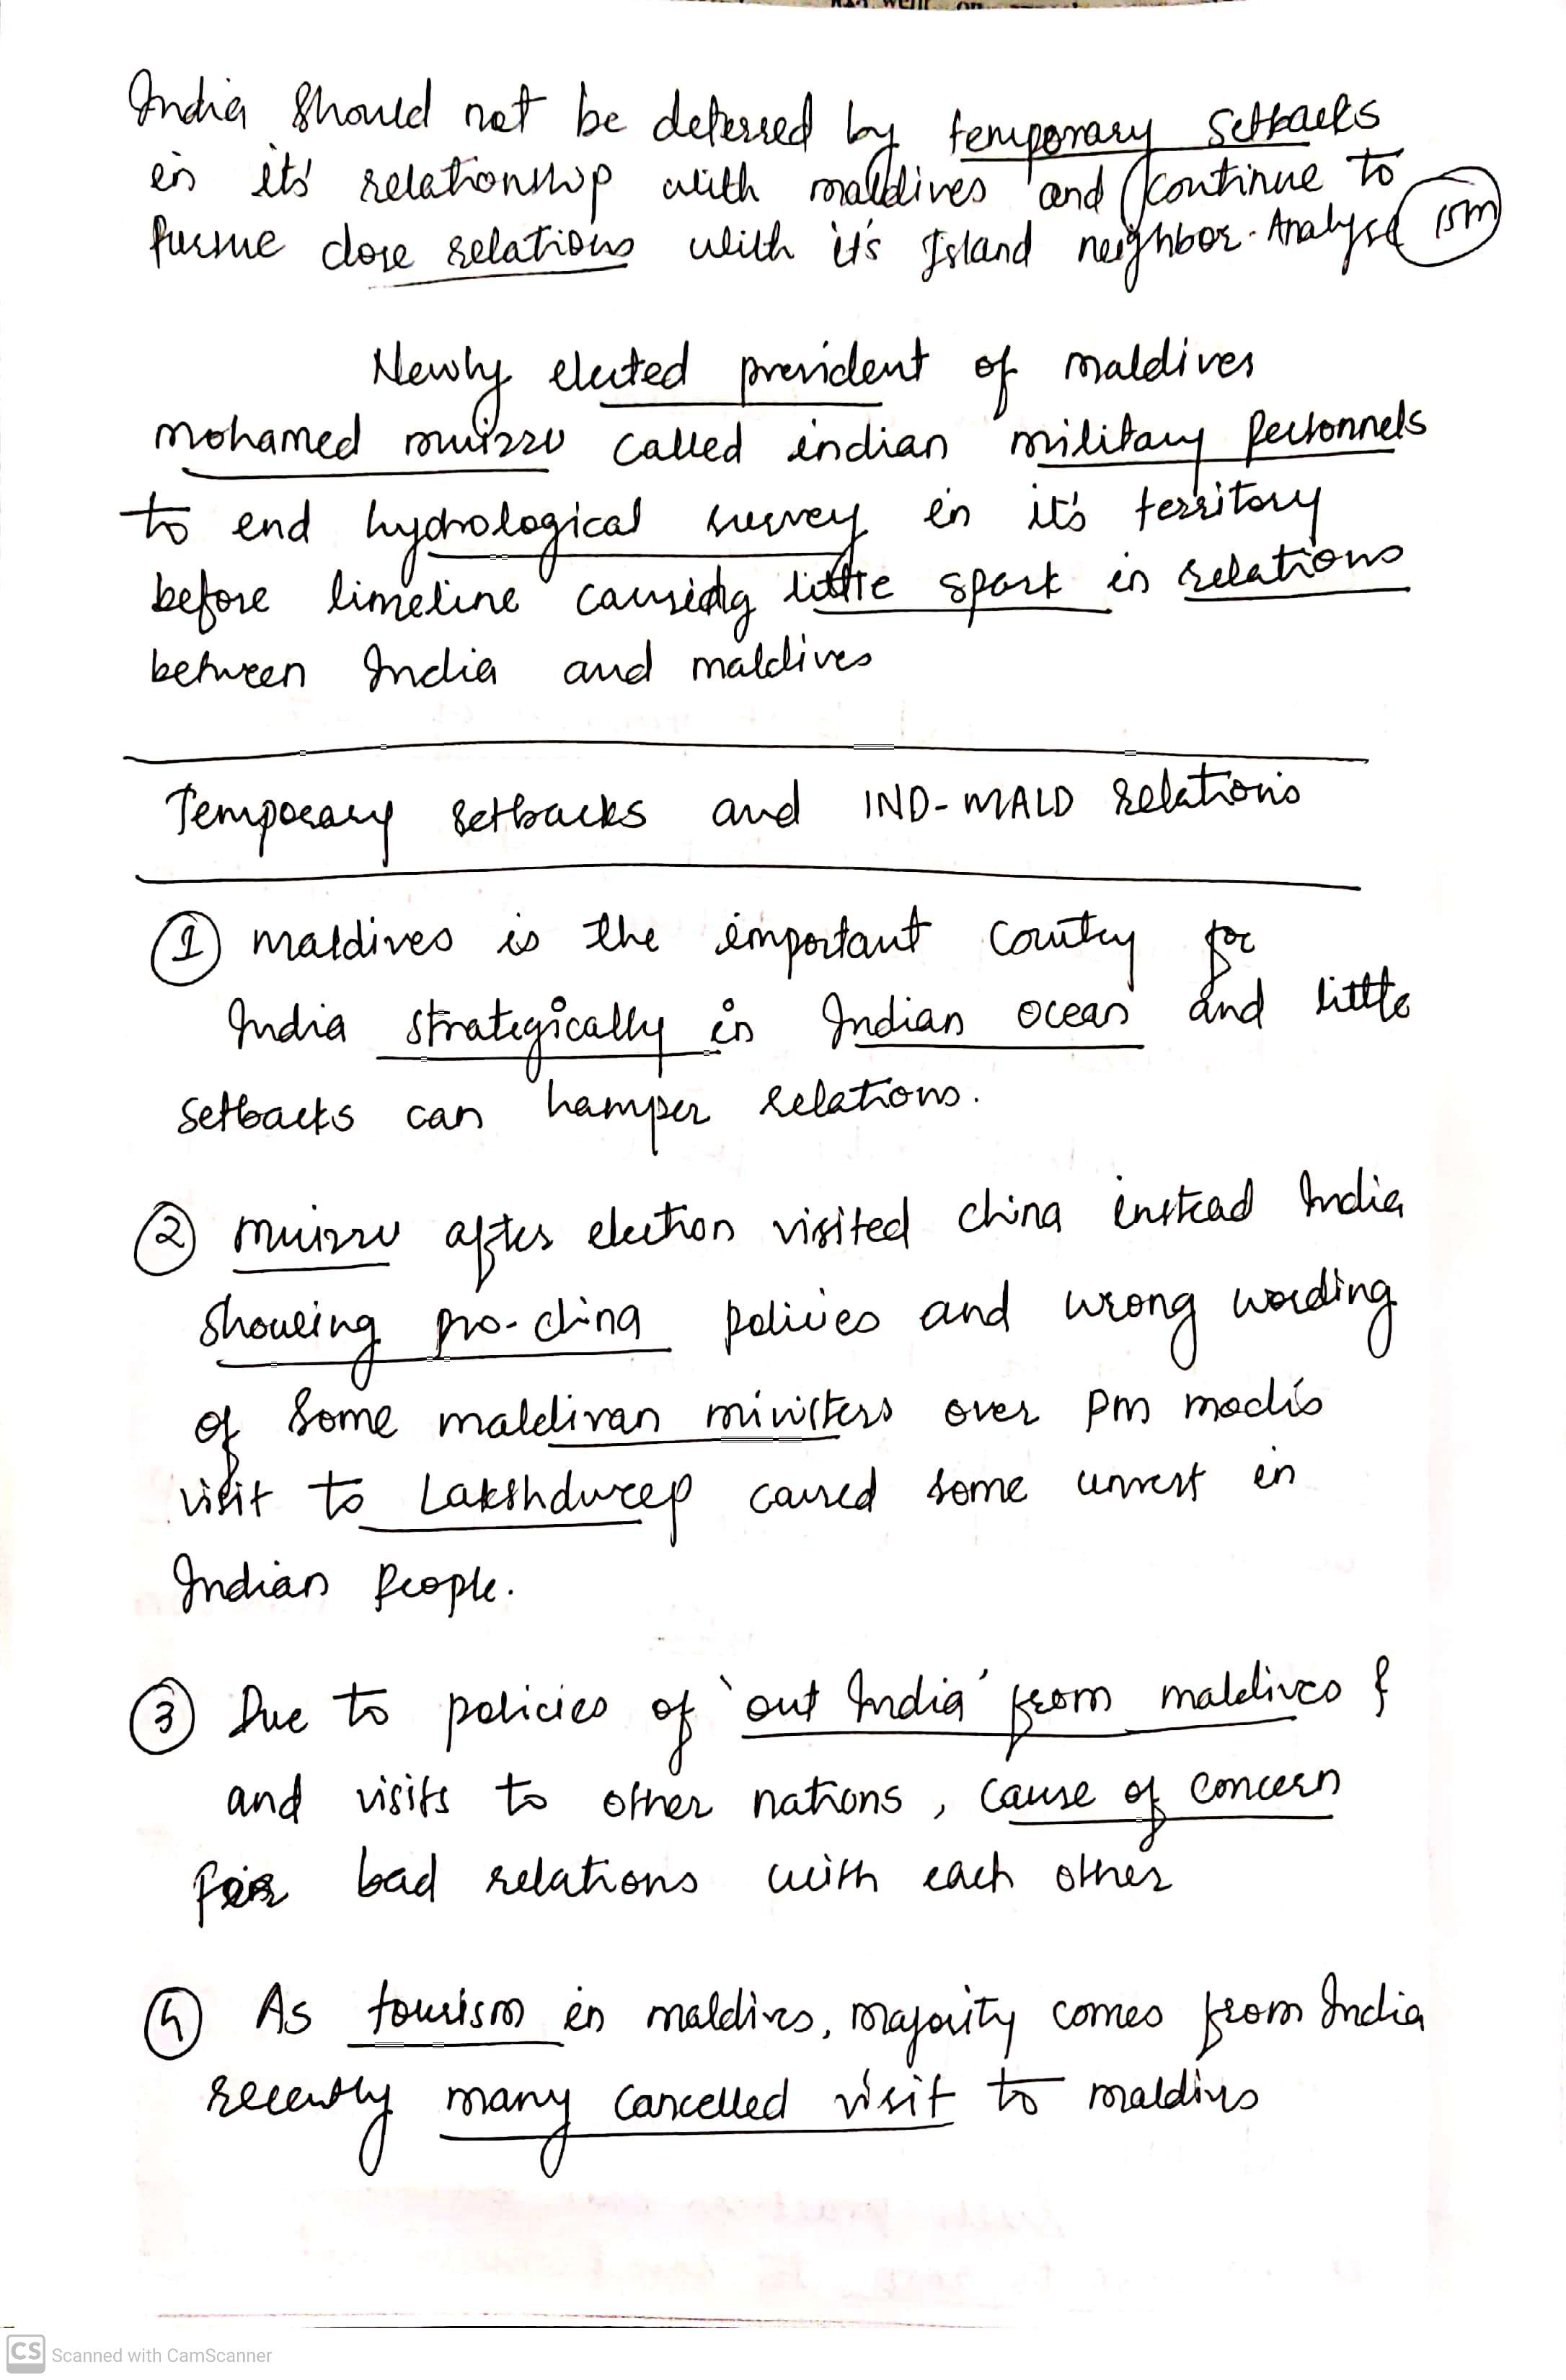 India Should not be deterred by temporary setbacks
in it's relationship with maldives and continue to
pursue close relations with it's Island neighbor. Analyse 15m
Newly elected president of maldives
mohamed muizzu called indian military personnels
to end hydrological survey in it's territory
before timeline causing little spark in relations
between India and maldives
Temporary setbacks and IND-MALD relations
1 maldives is the important country for
India strategically in Indian ocean and little
setbacks can hamper relations.
2 muizzu after election visited china instead India
showing pro-china policies and wrong wording
of some maldivan ministers over pm modis
visit to Lakshdweep caused some unrest in
Indian people.
3 Due to policies of 'out India' from maldives &
and visits to other nations, cause of concern
for bad relations with each other
4 As tourism in maldives, majority comes from India
recently many cancelled visit to maldives
CS Scanned with CamScanner